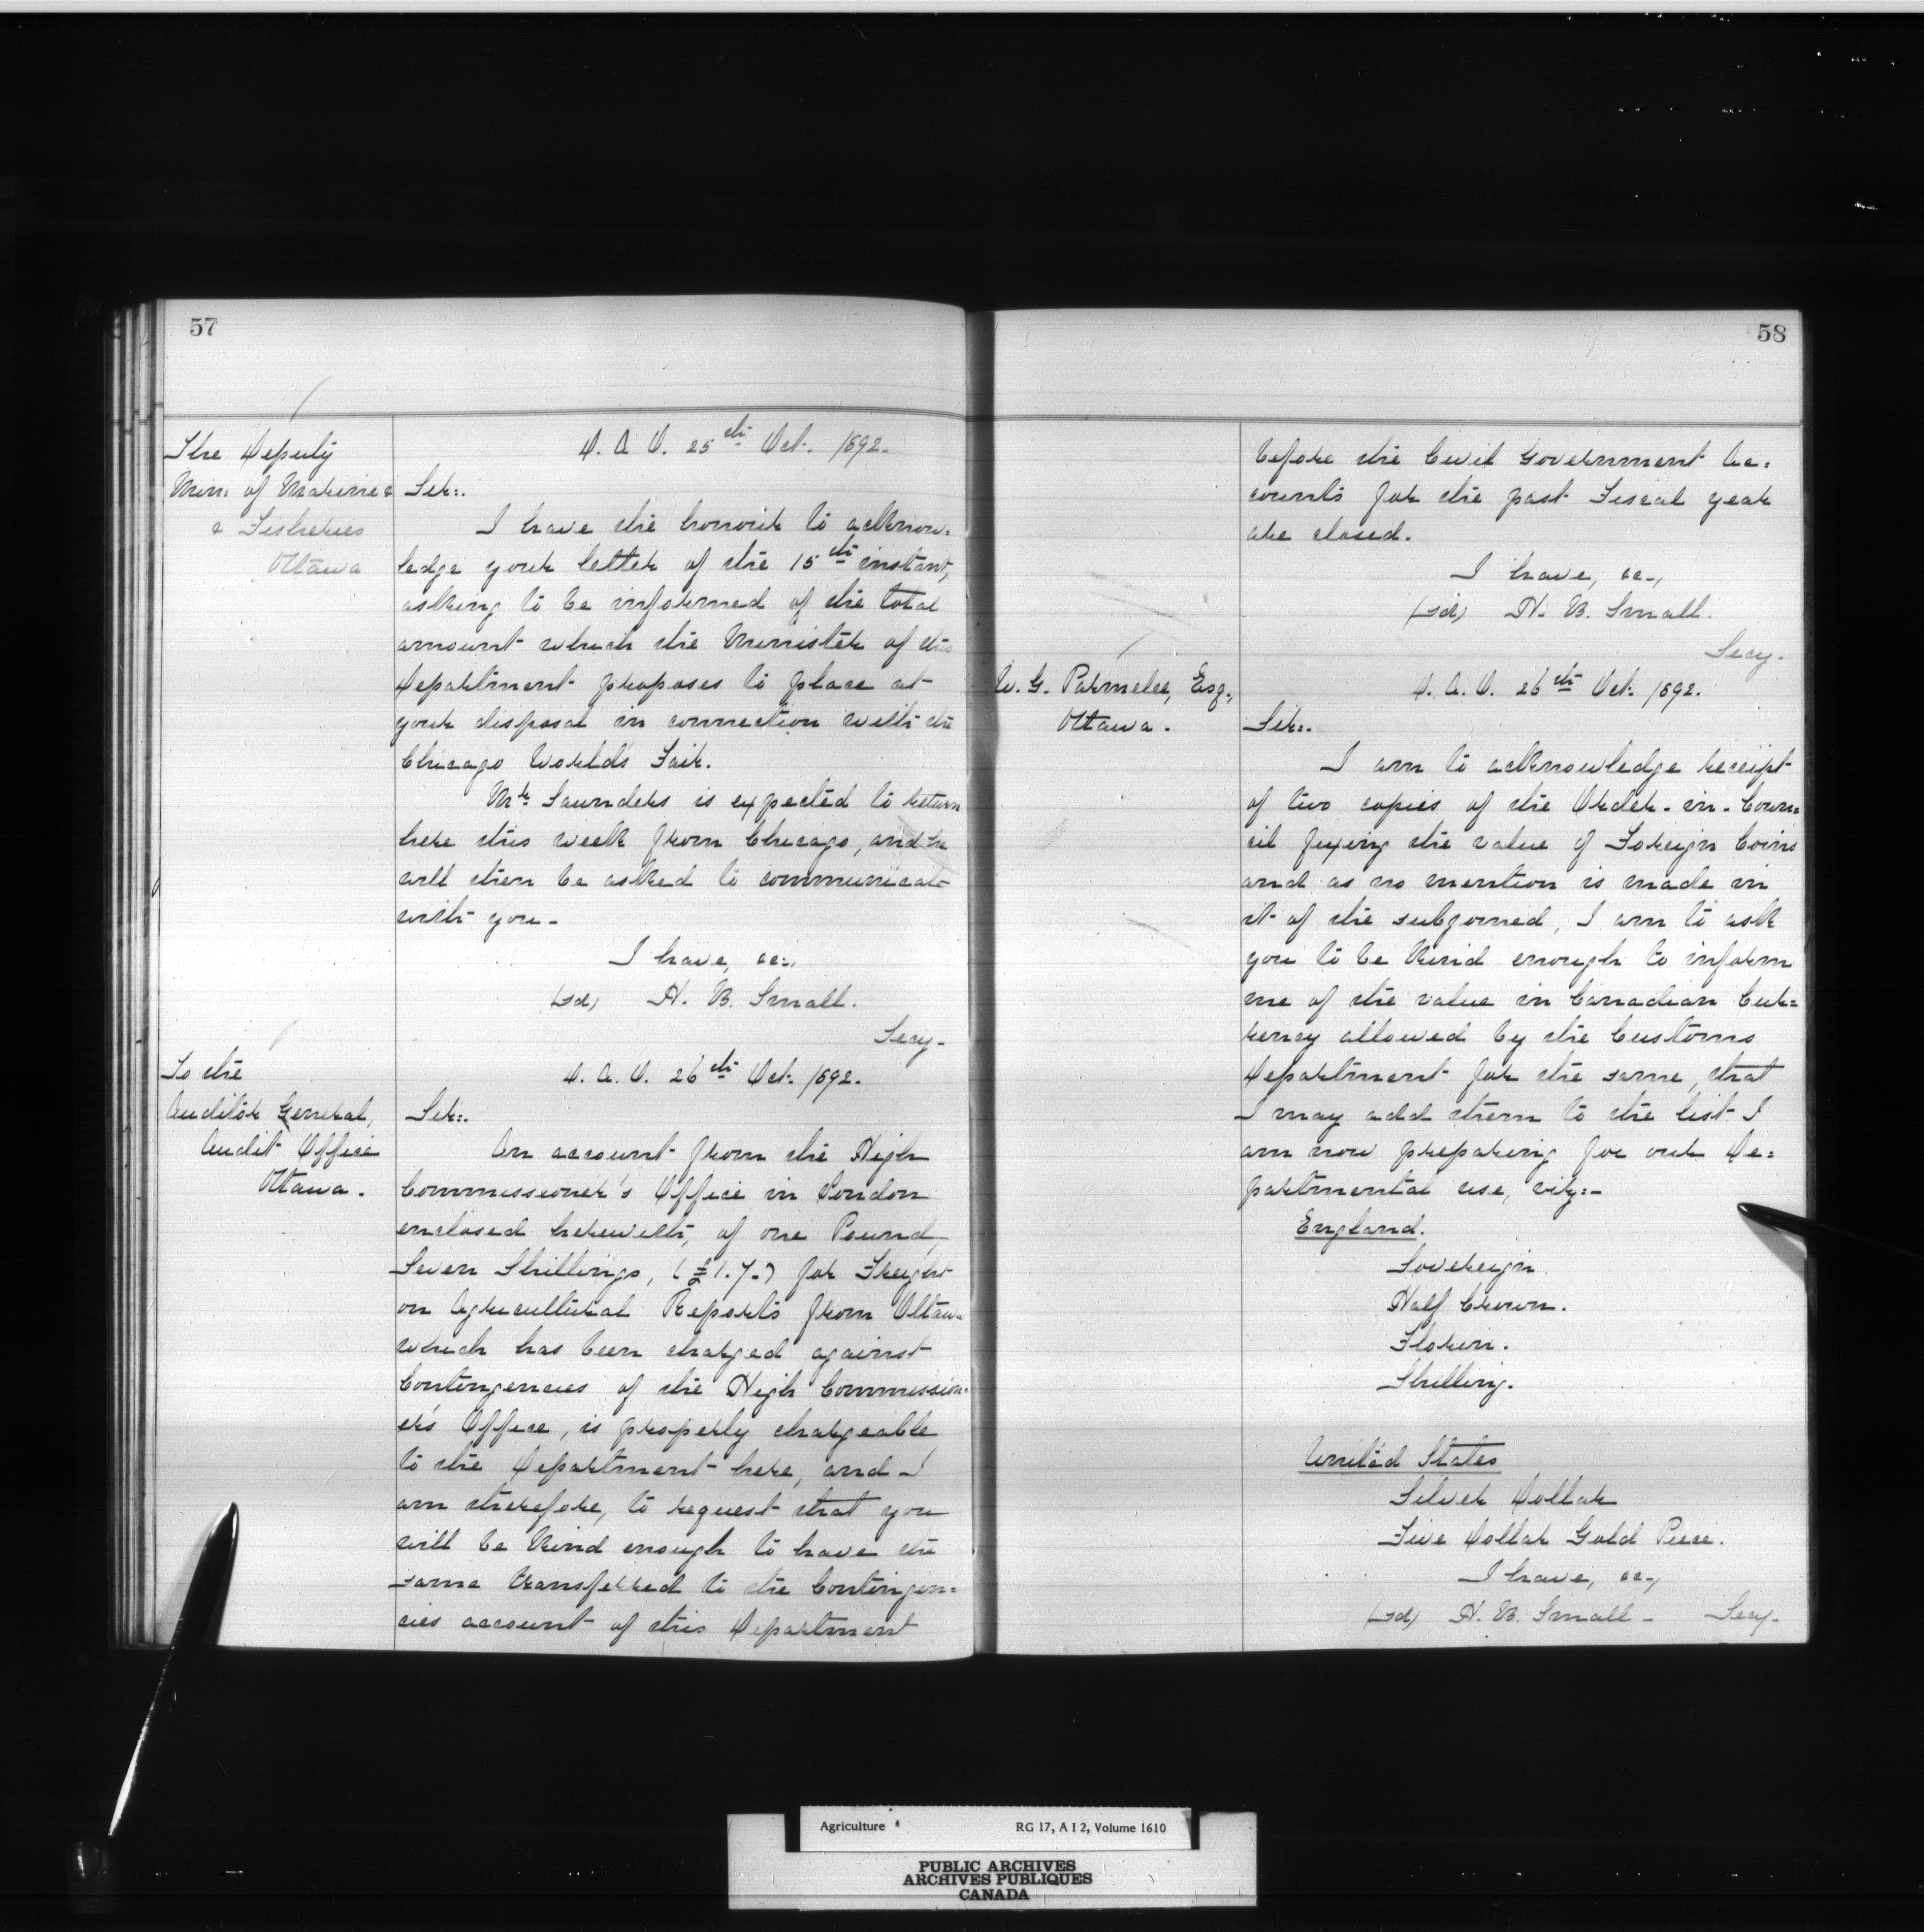 57
The Deputy
Min: of Marine &
& Fisheries
Ottawa
D. A. O. 25th Oct. 1892.
Sir:.
I have the honour to acknow=
ledge your letter of the 15th instant,
asking to be informed of the total
amount which the Minister of this
Department proposes to place at
your disposal in connection with the
Chicago World's Fair.
Mr. Saunders is expected to return
here this week from Chicago, and he
will then be asked to communicate
with you -
I have, &c.,
(sd) H. B. Small.
Secy-
To the
Auditor General,
Audit Office
Ottawa.
D. A. O. 26th Oct. 1892.
Sir:.
An account from the High
Commissioner's Office in London
enclosed herewith, of one Pound,
Seven Shillings, (£1.7-) for Freight
on Agricultural Reports from Ottawa
which has been charged against
Contingencies of the High Commission=
er's Office, is properly chargeable
to the Department here, and I
am therefore, to request that you
will be kind enough to have the
same transferred to the Contingen=
cies account of this Department
58
before the Civil Government Ac=
counts for the past Fiscal year
are closed.
I have, &c.,
(sd) H. B. Small.
Secy-
W. G. Parmelee, Esq.,
Ottawa.
D. A. O. 26th Oct. 1892.
Sir:.
I am to acknowledge receipt
of two copies of the Order-in-Coun=
cil fixing the value of Foreign Coins
and as no mention is made in
it of the subjoined, I am to ask
you to be kind enough to inform
me of the value in Canadian Cur=
rency allowed by the Customs
Department for the same, that
I may add them to the list I
am now preparing for our De=
partmental use, viz:-
England.
Sovereign.
Half Crown.
Florin.
Shilling.
United States
Silver Dollar
Five Dollar Gold Piece.
I have, &c.,
(sd) H. B. Small - Secy-
Agriculture RG 17, A I 2, Volume 1610
PUBLIC ARCHIVES
ARCHIVES PUBLIQUES
CANADA